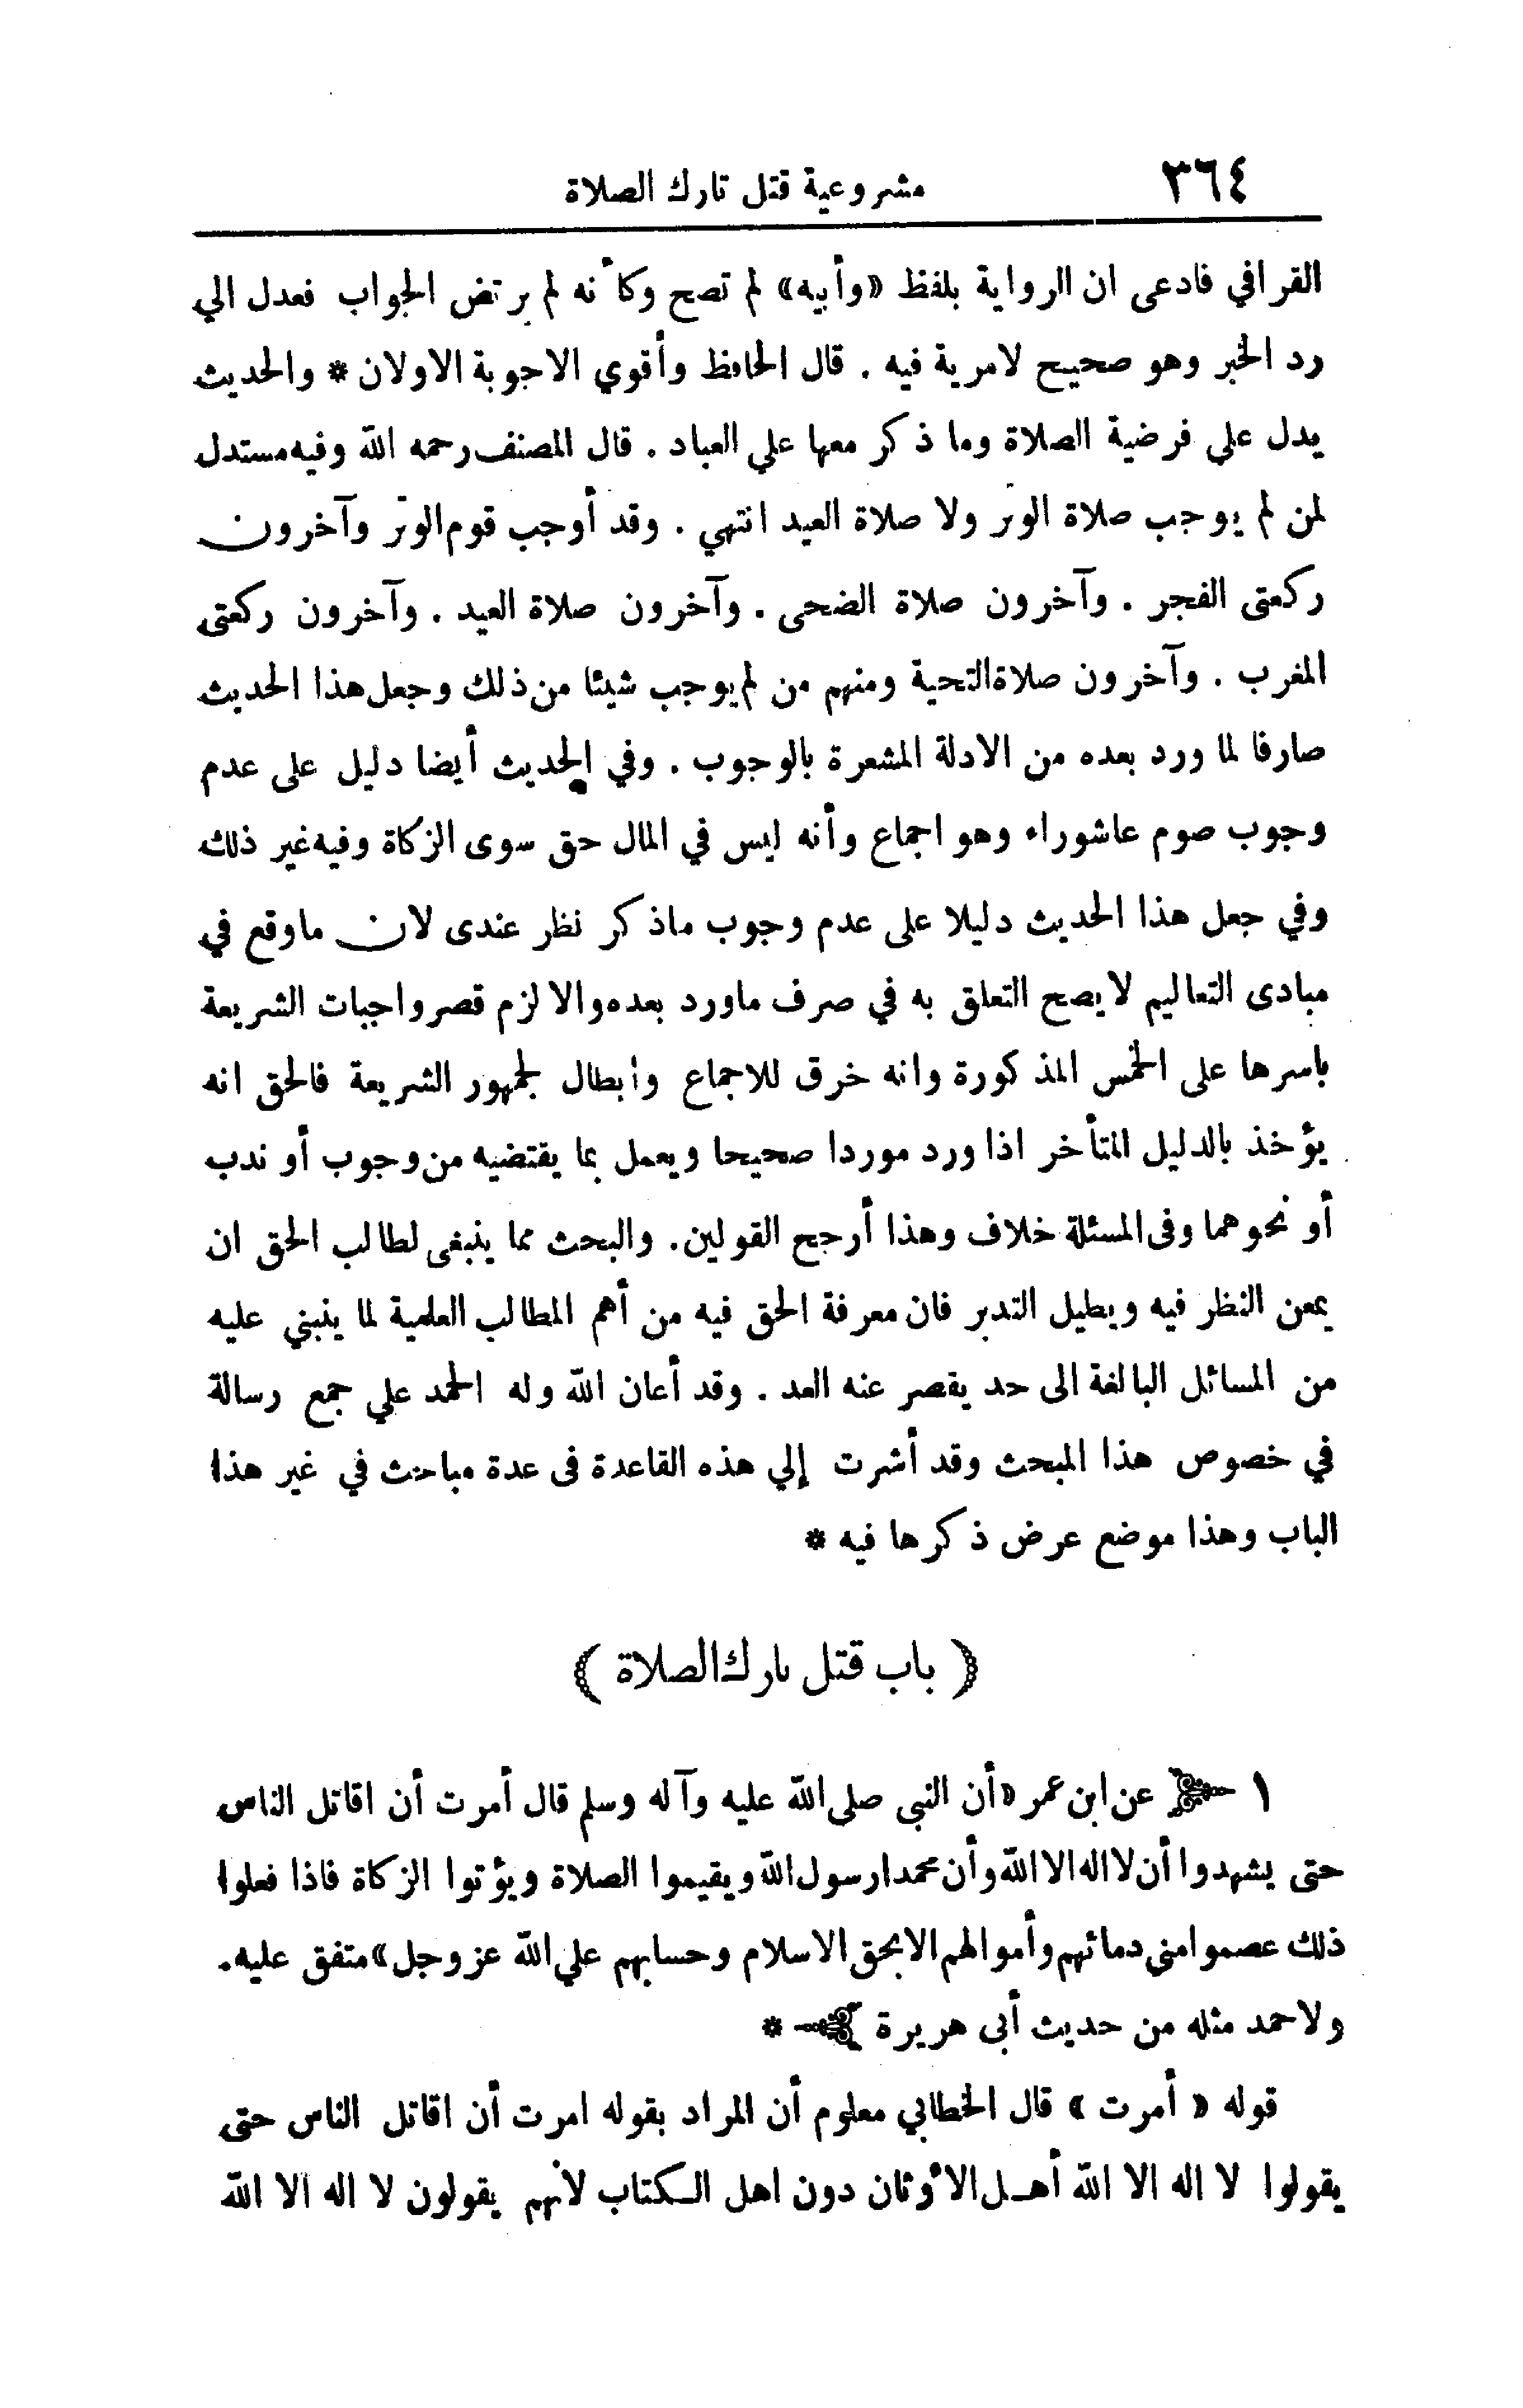 ٣٦٤ مشروعية قتل تارك الصلاة
القرافي فادعى ان الرواية بلفظ «وأبيه» لم تصح وكأنه لم يرتض الجواب فعدل الي
رد الخبر وهو صحيح لامرية فيه . قال الحافظ وأقوي الاجوبة الاولان * والحديث
يدل علي فرضية الصلاة وما ذكر معها علي العباد . قال المصنف رحمه الله وفيه مستدل
لمن لم يوجب صلاة الوتر ولا صلاة العيد انتهي . وقد أوجب قوم الوتر وآخرون
ركعتى الفجر . وآخرون صلاة الضحى . وآخرون صلاة العيد . وآخرون ركعتى
المغرب . وآخرون صلاة التحية ومنهم من لم يوجب شيئا من ذلك وجعل هذا الحديث
صارفا لما ورد بعده من الادلة المشعرة بالوجوب . وفي الحديث أيضا دليل على عدم
وجوب صوم عاشوراء وهو اجماع وأنه ليس في المال حق سوى الزكاة وفيه غير ذلك
وفي جعل هذا الحديث دليلا على عدم وجوب ماذكر نظر عندى لان ماوقع في
مبادى التعاليم لايصح التعلق به في صرف ماورد بعده والا لزم قصر واجبات الشريعة
باسرها على الخمس المذكورة وانه خرق للاجماع وابطال لجمهور الشريعة فالحق انه
يؤخذ بالدليل المتأخر اذا ورد موردا صحيحا ويعمل بما يقتضيه من وجوب أو ندب
أو نحوهما وفى المسئلة خلاف وهذا أرجح القولين. والبحث مما ينبغى لطالب الحق ان
يمعن النظر فيه ويطيل التدبر فان معرفة الحق فيه من أهم المطالب العلمية لما ينبني عليه
من المسائل البالغة الى حد يقصر عنه العد . وقد أعان الله وله الحمد علي جمع رسالة
في خصوص هذا المبحث وقد أشرت إلي هذه القاعدة فى عدة مباحث في غير هذا
الباب وهذا موضع عرض ذكرها فيه *
( باب قتل تارك الصلاة )
١ عن ابن عمر «أن النبى صلى الله عليه وآله وسلم قال أمرت أن اقاتل الناس
حتى يشهدوا أن لا اله الا الله وأن محمدا رسول الله ويقيموا الصلاة ويؤتوا الزكاة فاذا فعلوا
ذلك عصموا مني دمائهم وأموالهم الا بحق الاسلام وحسابهم علي الله عز وجل» متفق عليه.
ولاحمد مثله من حديث أبى هريرة *
قوله « أمرت » قال الخطابي معلوم أن المراد بقوله امرت أن اقاتل الناس حتى
يقولوا لا اله الا الله أهل الأوثان دون اهل الكتاب لأنهم يقولون لا اله الا الله